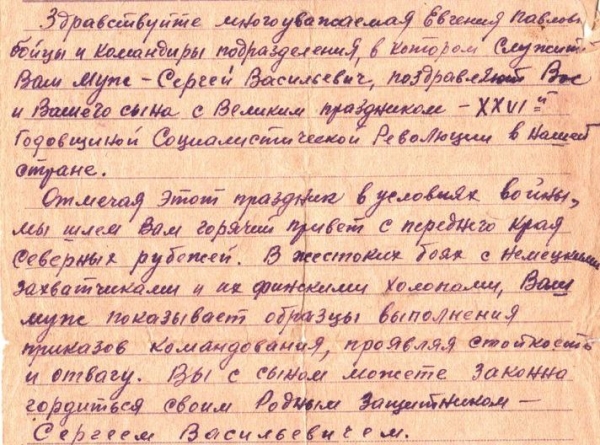 Здравствуйте многоуважаемая Евгения Павловн
бойцы и командиры подразделения, в котором служит
Ваш муж – Сергей Васильевич, поздравляют Вас
и Вашего сына с Великим праздником – XXVI-й
Годовщиной Социалистической Революции в нашей
стране.
Отмечая этот праздник в условиях войны,
мы шлем Вам горячий привет с переднего края
Северных рубежей. В жестоких боях с немецкими
захватчиками и их финскими холопами, Ваш
муж показывает образцы выполнения
приказов командования, проявляя стойкость
и отвагу. Вы с сыном можете законна
гордиться своим Родным Защитником –
Сергеем Васильевичем.